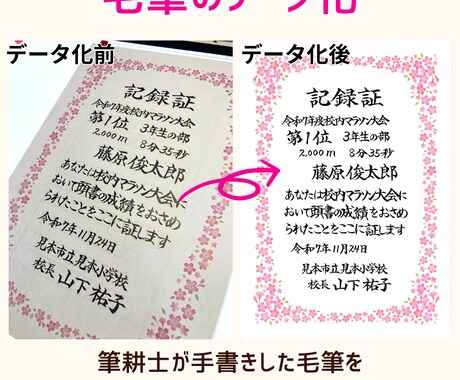 毛筆のデータ化
データ化前
記録証
令和7年度校内マラソン大会
第1位 3年生の部
2,000m 8分35秒
藤原俊太郎
あなたは校内マラソン大会に
おいて頭書の成績をおさめ
られたことをここに証します
令和7年11月24日
見本市立見本小学校
校長 山下祐子
データ化後
記録証
令和7年度校内マラソン大会
第1位 3年生の部
2,000m 8分35秒
藤原俊太郎
あなたは校内マラソン大会に
おいて頭書の成績をおさめ
られたことをここに証します
令和7年11月24日
見本市立見本小学校
校長 山下祐子
筆耕士が手書きした毛筆を